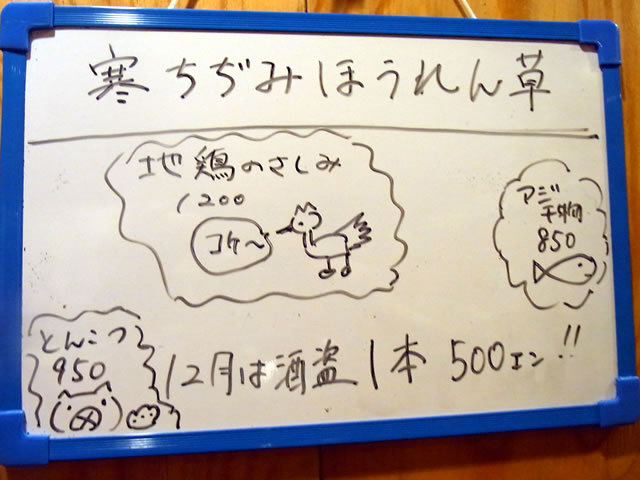 寒ちぢみほうれん草
地鶏のさしみ
1200
コケ〜
アジ
干物
850
とんこつ
950
12月は酒盗1本 500エン!!